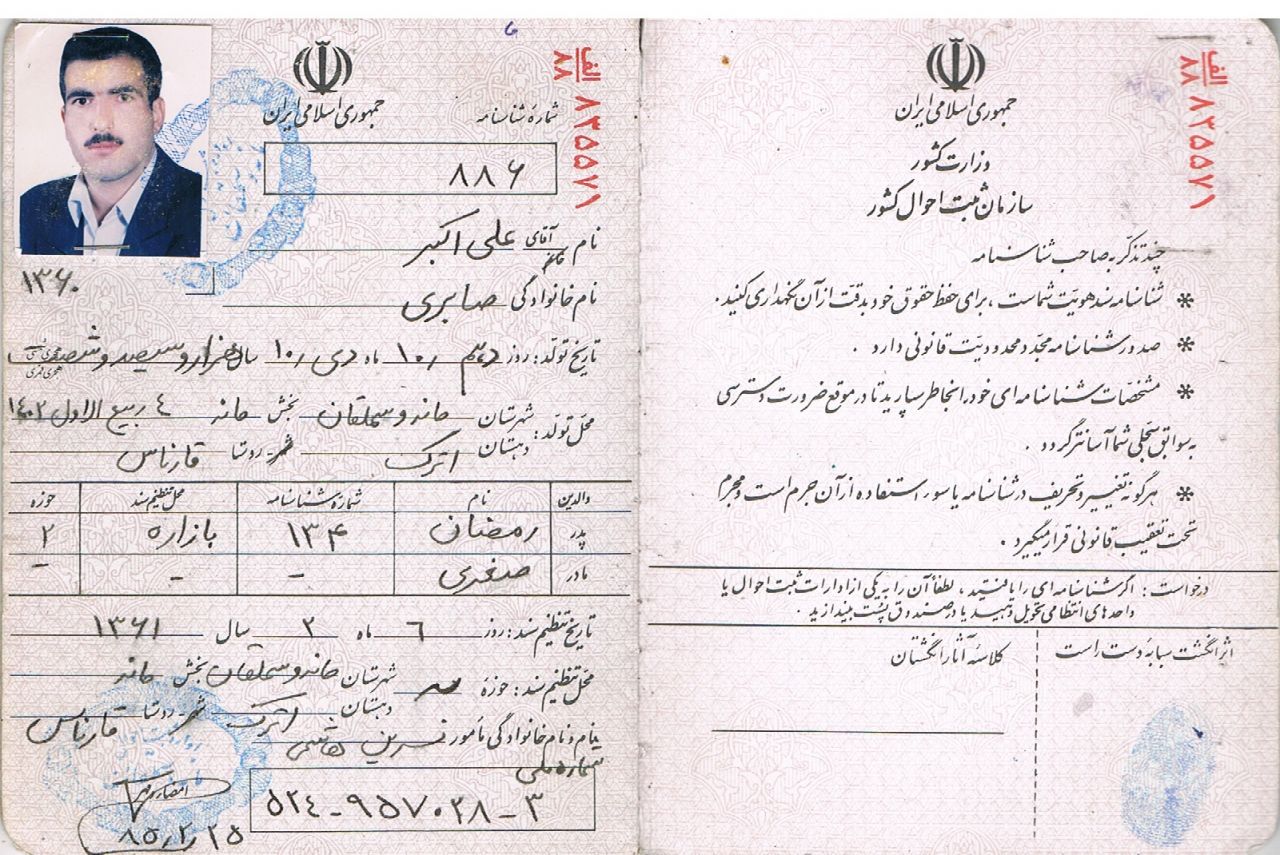 جمهوری اسلامی ایران
وزارت کشور
سازمان ثبت احوال کشور
الف
۸۸
۸۳۵۵۷۱
چند تذکر به صاحب شناسنامه
* شناسنامه سند هویت شماست ، برای حفظ حقوق خود بدقت از آن نگهداری کنید .
* صدور شناسنامه مجدد محدودیت قانونی دارد .
* مشخصات شناسنامه ای خود را بخاطر بسپارید تا در موقع ضرورت دسترسی
به سوابق سجلی شما آسانتر گردد .
* هرگونه تغییر و تحریف در شناسنامه یا سوء استفاده از آن جرم است و مجرم
تحت تعقیب قانونی قرار میگیرد .
درخواست : اگر شناسنامه ای را یافتید ، لطفاً آن را به یکی از ادارات ثبت احوال یا
واحدهای انتظامی تحویل دهید یا در صندوق پست بیندازید .
اثر انگشت سبابه دست راست
کلاسه آثار انگشتان
جمهوری اسلامی ایران
شماره شناسنامه
الف
۸۸
۸۳۵۵۷۱
۸۸۶
نام آقای علی اکبر
خانم
نام خانوادگی صابری
۱۳۶۰
تاریخ تولد : روز دهم ۱۰ ماه دی ۱۰ سال هزار و سیصد و شصت
هجری شمسی
هجری قمری
محل تولد : شهرستان مانه و سملقان بخش مانه ٤ ربیع الاول ۱٤۰۲
دهستان اترک شهر - روستا قارناس
والدین نام شماره شناسنامه محل تنظیم سند حوزه
پدر رمضان ۱۳۴ بازاره ۲
مادر صغری - - -
تاریخ تنظیم سند : روز ۶ ماه ۲ سال ۱۳۶۱
محل تنظیم سند : حوزه شهرستان مانه و سملقان بخش مانه
دهستان اترک شهر - روستا قارناس
نام و نام خانوادگی مأمور
شماره ملی
۵۲٤-۹۵۷۰۲۸-۳
امضاء و مهر
۸۵/۲/۲۵